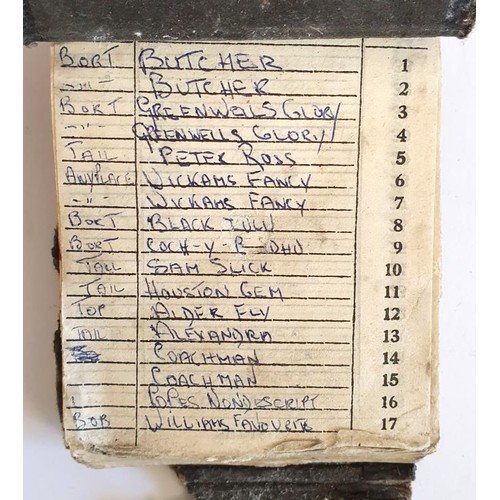 BORT BUTCHER 1
-"- BUTCHER 2
BORT GREENWELS GLORY 3
-"- GREENWELLS GLORY 4
TAIL PETER ROSS 5
ANYPLACE WICKAMS FANCY 6
-"- WICKAMS FANCY 7
BORT BLACK ZULU 8
BORT COCH-Y-B DHU 9
TAIL SAM SLICK 10
TAIL HOUSTON GEM 11
TOP ALDER FLY 12
TAIL ALEXANDRA 13
COACHMAN 14
COACHMAN 15
COPES NONDESCRIPT 16
BOB WILLIAMS FAVOURITE 17